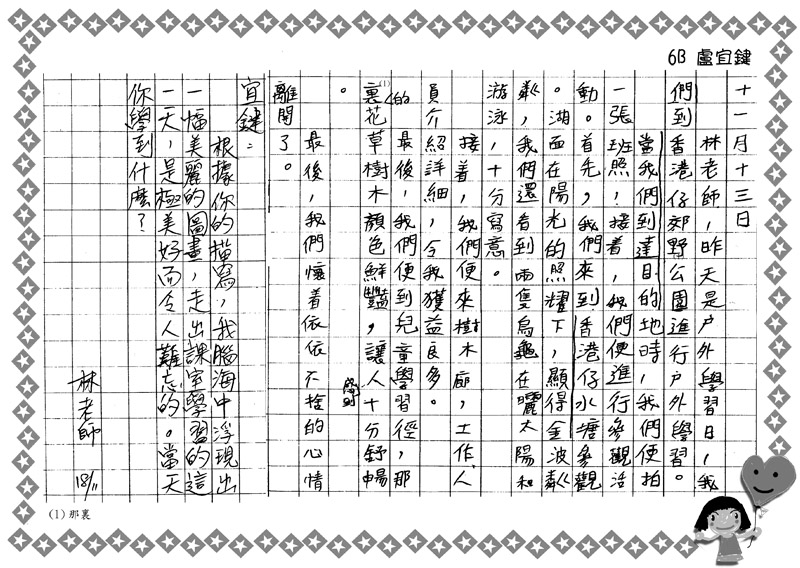 6B 盧宜鍵
十一月十三日
林老師，昨天是戶外學習日，我
們到香港仔郊野公園進行戶外學習。
當我們到達目的地時，我們便拍
一張班照！接着，我們便進行參觀活
動。首先，我們來到香港仔水塘參觀
。湖面在陽光的照耀下，顯得金波粼
粼，我們還看到兩隻烏龜在曬太陽和
游泳，十分寫意。
接着，我們便來樹木廊，工作人
員介紹詳細，令我獲益良多。
最後，我們便到兒童學習徑，那
裏(1)的花草樹木顏色鮮豔，讓人十分舒暢
。
最後，我們懷着依依不捨的心情
離開了。
宜鍵：
根據你的描寫，我腦海中浮現出
一幅美麗的圖畫，走出課室學習的這
一天，是極美好而令人難忘的。當天
你學到什麼？
林老師 18/11
(1) 那裏